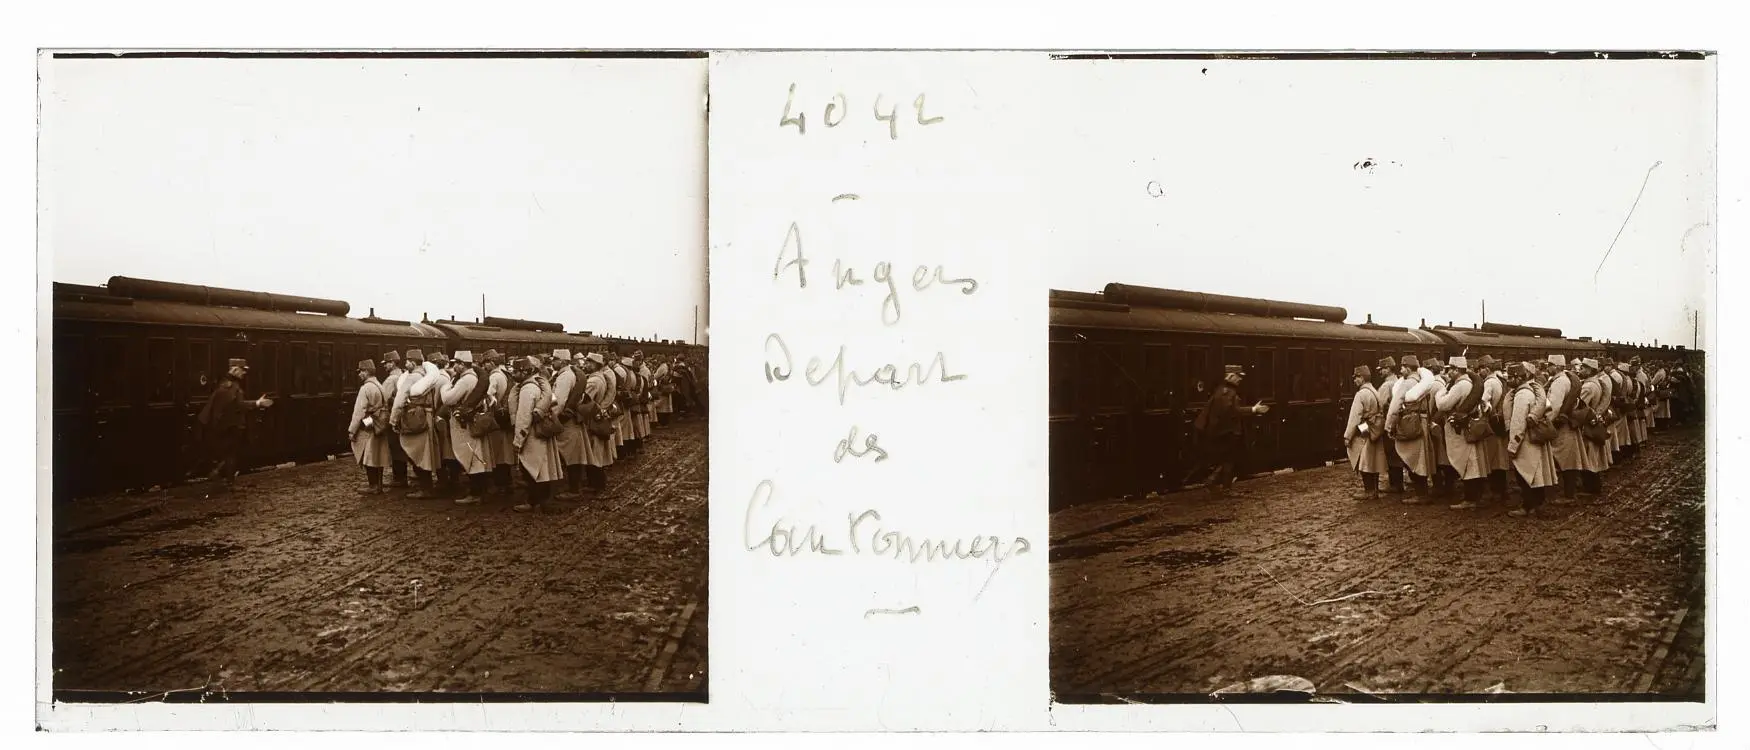 4042
Angers
Depart
des
Cantonniers